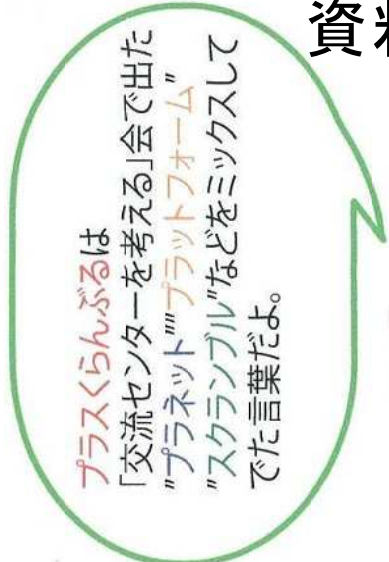 資料
プラスくらんぶるは
「交流センターを考える」会で出た
"プラネット""プラットフォーム"
"スクランブル"などをミックスして
でた言葉だよ。